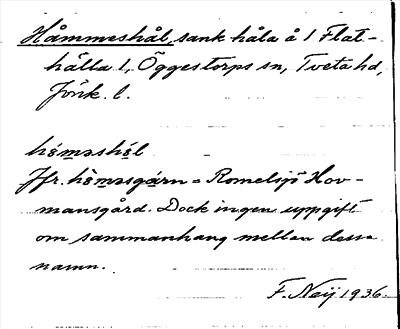 Håmmeshål, sank håla å 1 Flat-
hålla 1, Öggestorps sn, Tveta hd,
Jönk. l.
hòməshól
Jfr. hòməsgárn = Romelsjö Hov-
mansgård. Dock ingen uppgift
om sammanhang mellan dessa
namn.
F. Neij 1936.